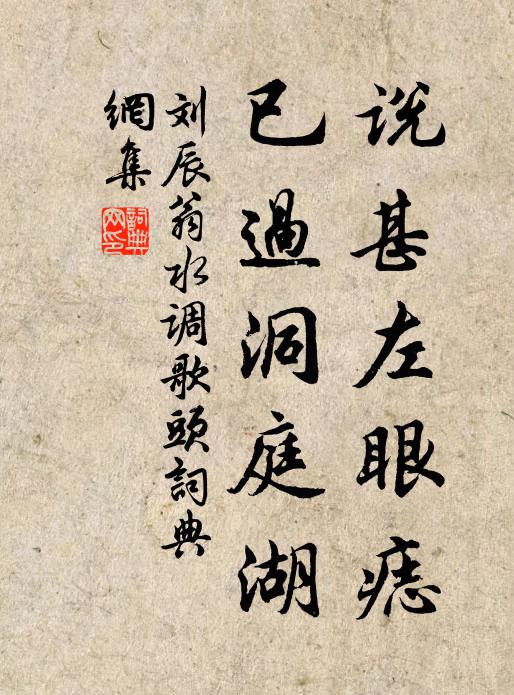 说甚左眼痣
已過洞庭湖
刘辰翁水调歌頭詞典
網集
詞典
网印